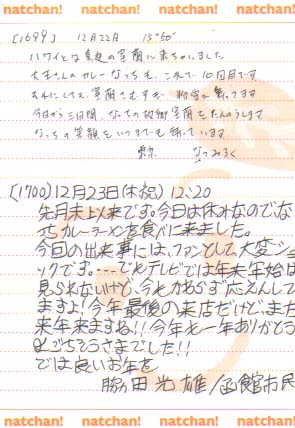 natchan! natchan! natchan! natchan!
[1699] 12月22日 15:50
ハワイとは真逆の室蘭に来ちゃいました
大王さんのカレーなっちも、これで10回目です
それにしても、室蘭さむすぎ 粉雪が舞ってます
今日から三日間、なっちの故郷室蘭をたんのうします
なっちの笑顔をいつまでも願っています
東京 なつみろく
[1700] 12月23日(木・祝) 12:20
先月末以来です。今日は休みなので、な
っちカレーラーメンを食べに来ました。
今回の出来事には、ファンとして、大変ショ
ックです。---でもテレビでは年末年始は
見られないけど、今もかわらず応えんして
ますよ!今年最後の来店だけど、また
来年来ますね!!今年も一年ありがとう
&ごちそうさまでした!!
では良いお年を
脇田光雄/函館市民
natchan! natchan! natchan! natchan!